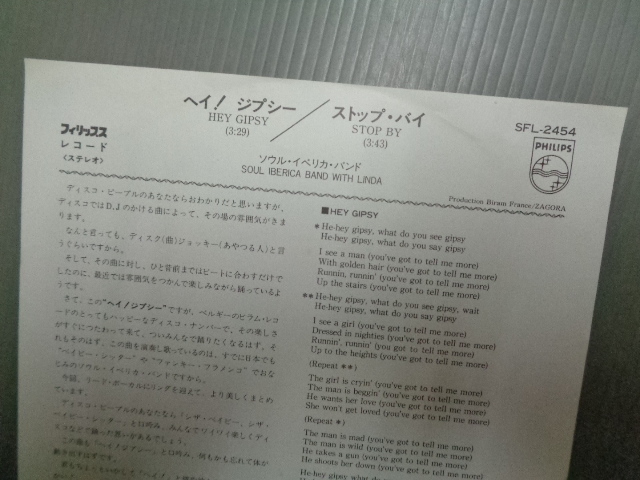 ヘイ！ ジプシー／ストップ・バイ
HEY GIPSY STOP BY
(3:29) (3:43)
ソウル・イベリカ・バンド
SOUL IBERICA BAND WITH LINDA
フィリップス
レコード
〈ステレオ〉
SFL-2454
PHILIPS
Production Biram France/ZAGORA
ディスコ・ピープルのあなたならおわかりだと思いますが、
ディスコではD.Jのかける曲によって、その場の雰囲気がきま
ります。
なんと言っても、ディスク(曲)ジョッキー(あやつる人)と言
うぐらいですから。
そして、その曲に対し、ひと昔前まではビートに合わすだけで
したのに、最近では雰囲気をつかんで楽しみながら踊っているよ
うです。
さて、この"ヘイ！ジプシー"ですが、ベルギーのビラム・レコー
ドのとってもハッピーなディスコ・ナンバーで、その楽しさ
がすぐにつたわって来て、ついみんなで踊りたくなるはず。そ
れもそのはず、この曲を演奏し歌っているのは、すでに日本でも
"ベイビー・シッター"や"ファンキー・フラメンコ"でおな
じみのソウル・イベリカ・バンドですから。
今回、リード・ボーカルにリンダを迎えて、より美しくまとめ
ています。
ディスコ・ピープルのあなたなら「シザ・ベイビー、シザ・
ベイビー・シッター」と口ずさみ、みんなでワイワイ楽しくディ
スコなどで踊った思いがあるでしょう。
この曲も「ヘイ！ジプシー」と口ずさみ、何もかも忘れて体が
■HEY GIPSY
*He-hey gipsy, what do you see gipsy
He-hey gipsy, what do you say gipsy
I see a man (you've got to tell me more)
With golden hair (you've got to tell me more)
Runnin, runnin (you've got to tell me more)
Up the stairs (you've got to tell me more)
**He-hey gipsy, what do you see gipsy, wait
He-hey gipsy, what do you say gipsy
I see a girl (you've got to tell me more)
Dressed in nighties (you've got to tell me more)
Runnin', runnin' (you've got to tell me more)
Up to the heights (you've got to tell me more)
(Repeat **)
The girl is cryin' (you've got to tell me more)
The man is beggin' (you've got to tell me more)
He wants her love (you've got to tell me more)
She won't get loved (you've got to tell me more)
(Repeat *)
The man is mad (you've got to tell me more)
The man is wild (you've got to tell me more)
He takes a gun (you've got to tell me more)
He shoots her down (you've got to tell me more)